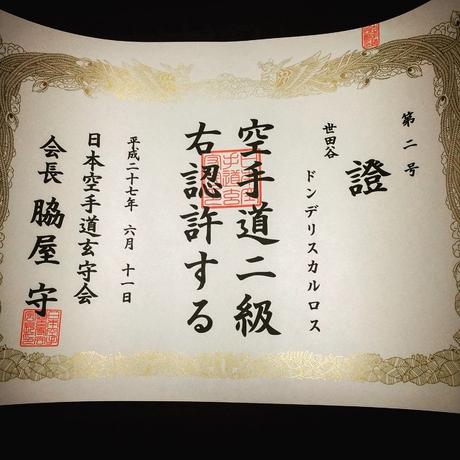 第二号
證
世田谷
ドンデリスカルロス
空手道二級
右認許する
平成二十七年 六月 十一日
日本空手道玄守会
会長 脇屋 守